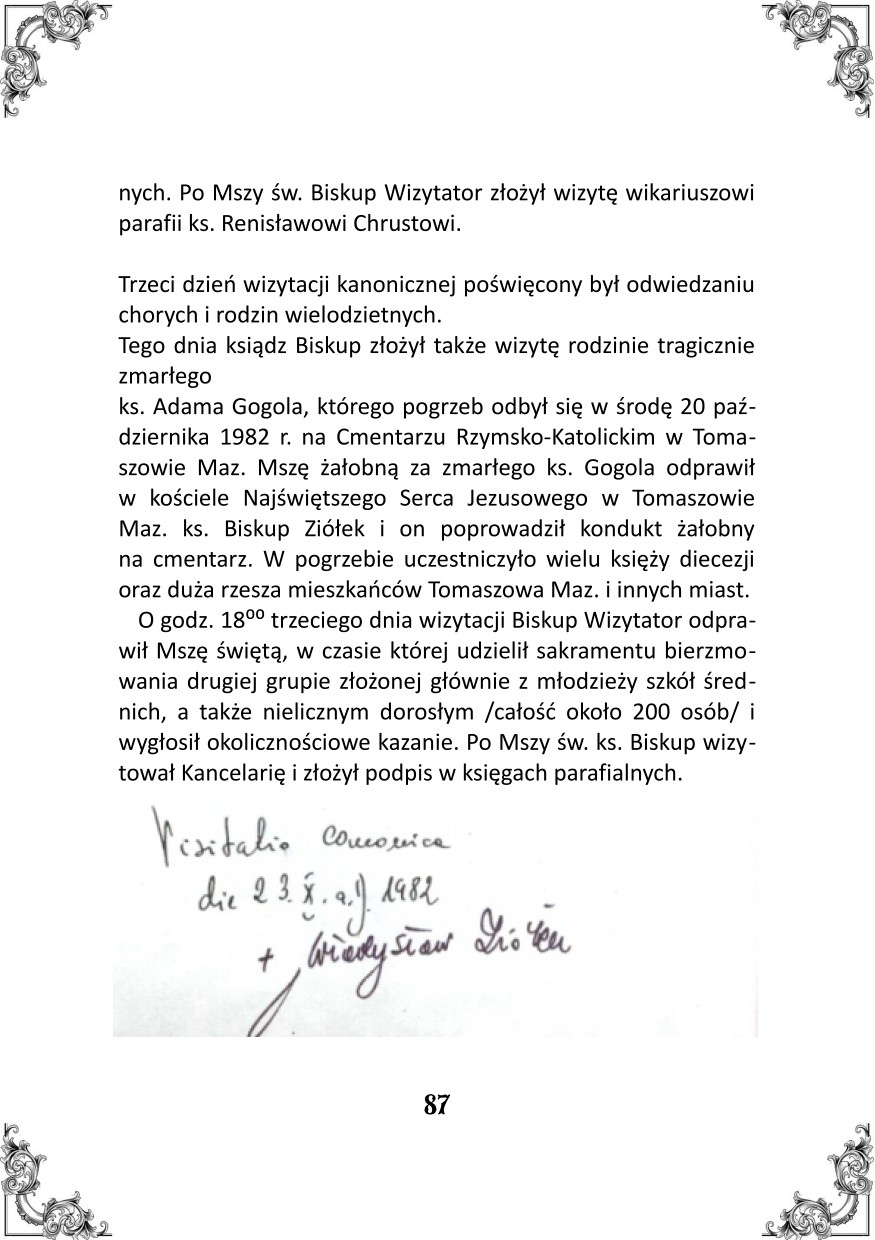 nych. Po Mszy św. Biskup Wizytator złożył wizytę wikariuszowi
parafii ks. Renisławowi Chrustowi.
Trzeci dzień wizytacji kanonicznej poświęcony był odwiedzaniu
chorych i rodzin wielodzietnych.
Tego dnia ksiądz Biskup złożył także wizytę rodzinie tragicznie
zmarłego
ks. Adama Gogola, którego pogrzeb odbył się w środę 20 paź-
dziernika 1982 r. na Cmentarzu Rzymsko-Katolickim w Toma-
szowie Maz. Mszę żałobną za zmarłego ks. Gogola odprawił
w kościele Najświętszego Serca Jezusowego w Tomaszowie
Maz. ks. Biskup Ziółek i on poprowadził kondukt żałobny
na cmentarz. W pogrzebie uczestniczyło wielu księży diecezji
oraz duża rzesza mieszkańców Tomaszowa Maz. i innych miast.
O godz. 18⁰⁰ trzeciego dnia wizytacji Biskup Wizytator odpra-
wił Mszę świętą, w czasie której udzielił sakramentu bierzmo-
wania drugiej grupie złożonej głównie z młodzieży szkół śred-
nich, a także nielicznym dorosłym /całość około 200 osób/ i
wygłosił okolicznościowe kazanie. Po Mszy św. ks. Biskup wizy-
tował Kancelarię i złożył podpis w księgach parafialnych.
Visitatio canonica
die 23. X. a.D. 1982
+ Władysław Ziółek
87